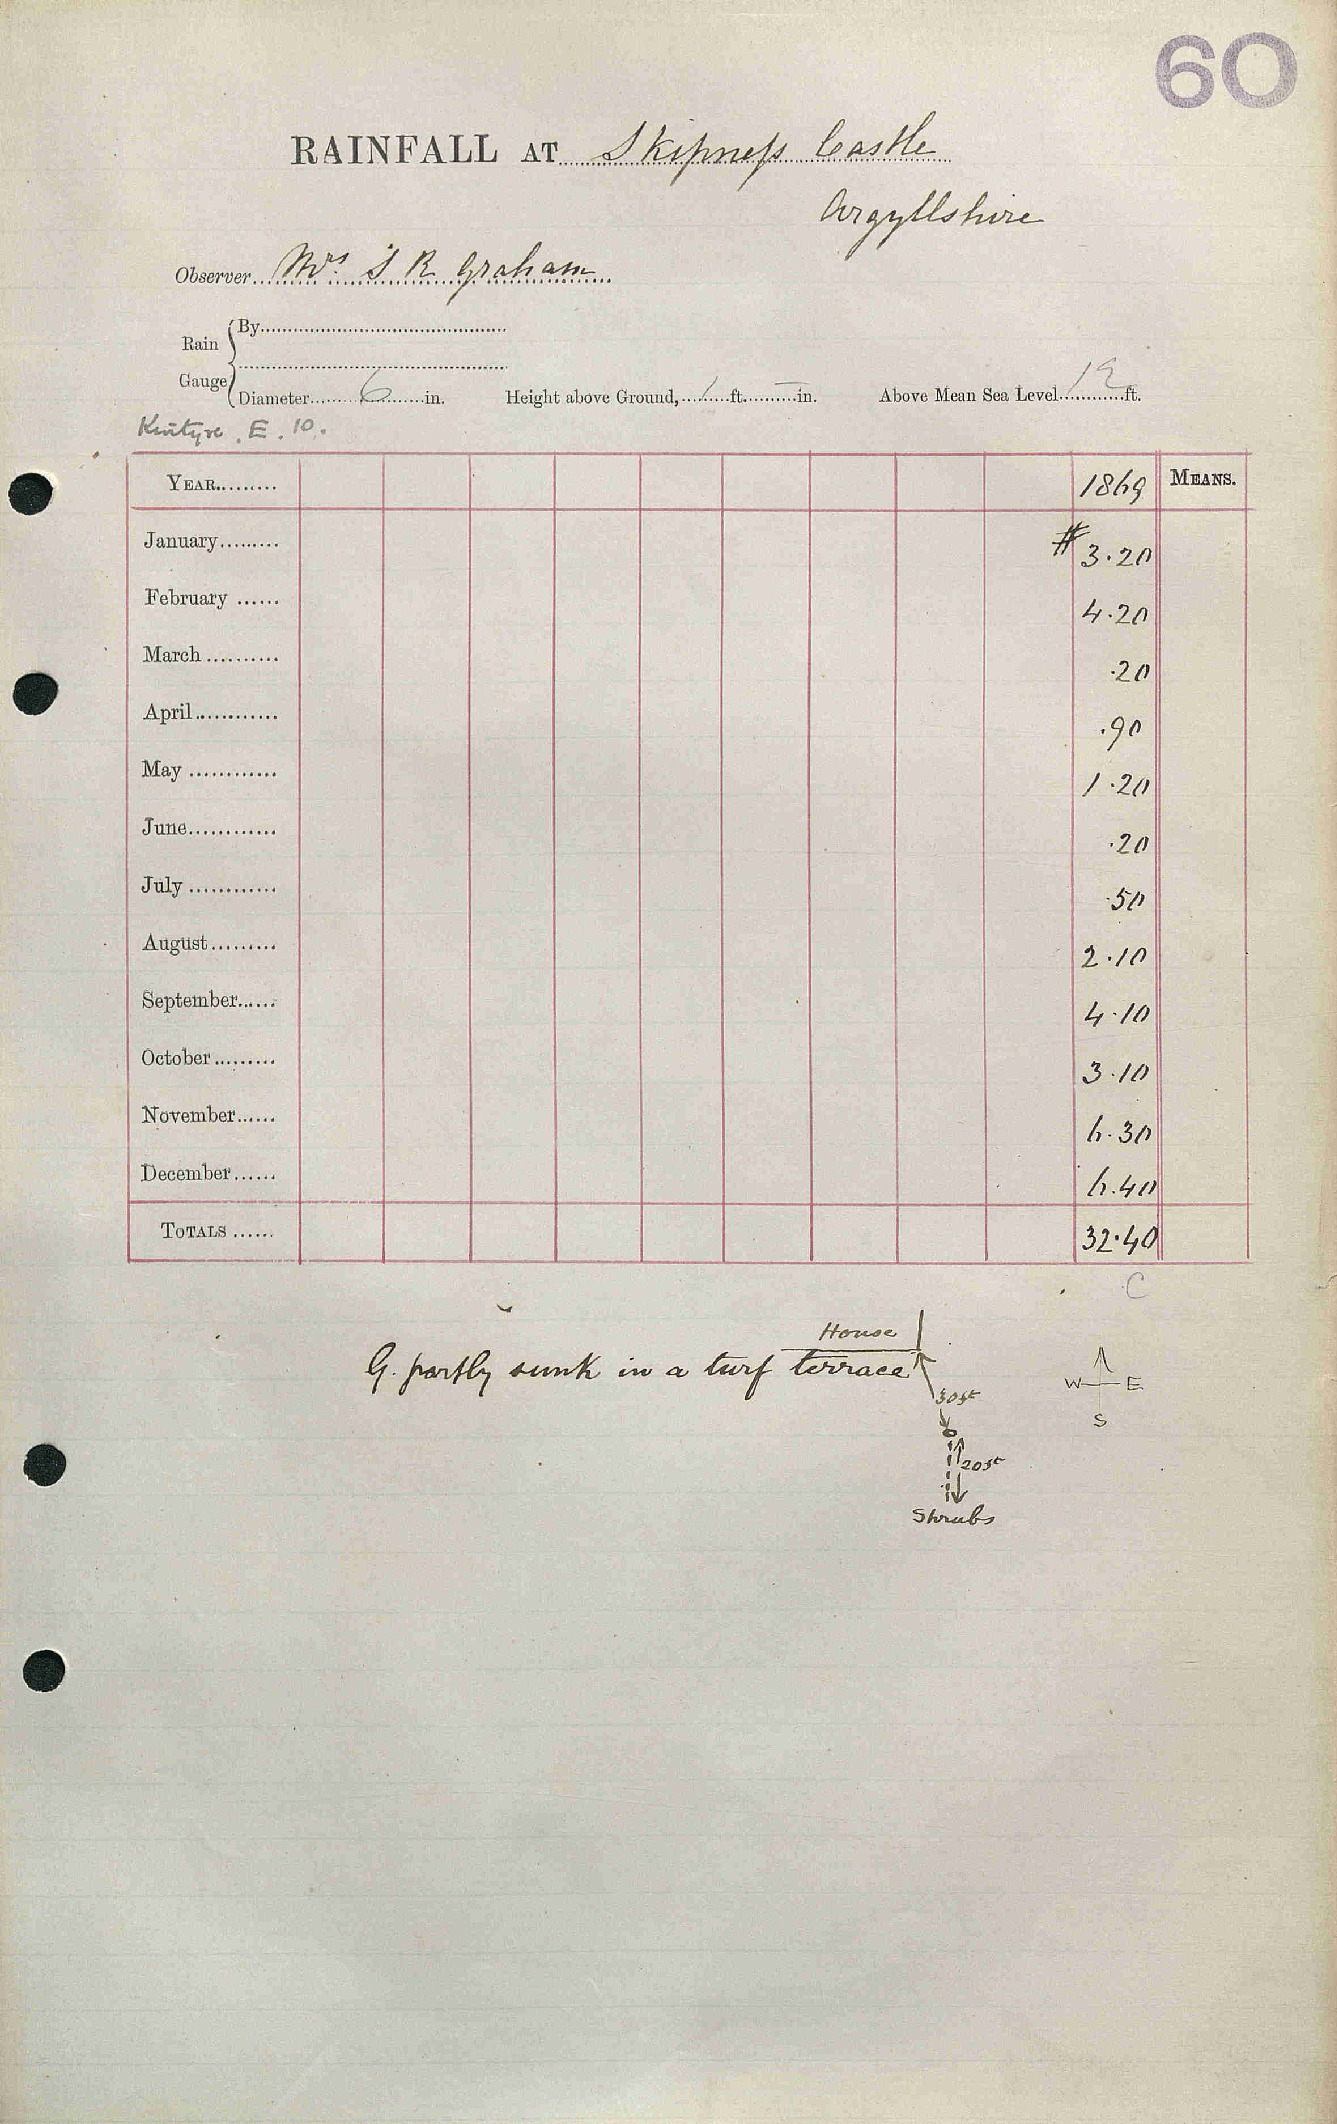 60
RAINFALL AT Skipness Castle
Argyllshire
Observer Mrs S R Graham
Rain Gauge
By
Diameter 6 in. Height above Ground, 1 ft. — in. Above Mean Sea Level 12 ft.
Kintyre. E. 10.
YEAR 1869 MEANS.
January # 3.20
February 4.20
March .20
April .90
May 1.20
June .20
July .50
August 2.10
September 4.10
October 3.10
November 6.30
December 6.40
TOTALS 32.40
C
House
G. partly sunk in a turf terrace
W E
S
30ft
20ft
Shrubs